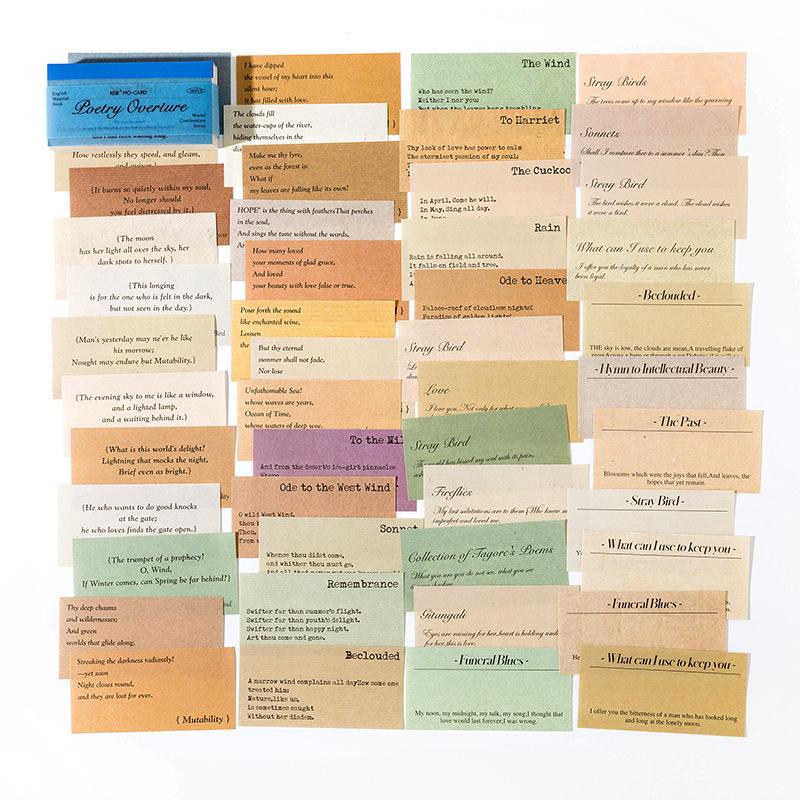 English
Material
Book
MO-CARD
Poetry Overture
Material
Series
How restlessly they speed, and gleam,
{It burns so quietly within my soul,
No longer should
you feel distressed by it.}
{The moon
has her light all over the sky, her
dark spots to herself. }
{This longing
is for the one who is felt in the dark,
but not seen in the day.}
{Man's yesterday may ne'er be like
his morrow;
Nought may endure but Mutability.}
{The evening sky to me is like a window,
and a lighted lamp,
and a waiting behind it.}
{What is this world's delight?
Lightning that mocks the night,
Brief even as bright.}
{He who wants to do good knocks
at the gate;
he who loves finds the gate open.}
{The trumpet of a prophecy!
O, Wind,
If Winter comes, can Spring be far behind?}
Thy deep chasms
and wildernesses;
And green
worlds that glide along.
Streaking the darkness radiantly!
—yet soon
Night closes round,
and they are lost for ever.
{ Mutability }
I have dipped
the vessel of my heart into this
silent hour;
it has filled with love.
The clouds fill
the water-cups of the river,
hiding themselves in the
Make me thy lyre,
even as the forest is:
What if
my leaves are falling like its own!
HOPE" is the thing with feathersThat perches
in the soul,
And sings the tune without the words,
How many loved
your moments of glad grace,
And loved
your beauty with love false or true.
Pour forth the sound
like enchanted wine,
Loosen
the
But thy eternal
summer shall not fade,
Nor lose
Unfathomable Sea!
whose waves are years,
Ocean of Time,
whose waters of deep woe.
To the Nil
And from the desert's ice-girt pinnacles
Where
Ode to the West Wind
O wild West Wind,
thou
Thou,
from
Sonnet
Whence thou didst come,
and whither thou must go,
And all that
Remembrance
Swifter far than summer's flight.
Swifter far than youth's delight.
Swifter far than happy night.
Art thou come and gone.
Beclouded
A narrow wind complains all dayHow come one
treated him;
Nature,like us,
is sometimes caught
Without her diadem.
The Wind
Who has seen the wind?
Neither I nor you:
But when the leaves hang trembling
To Harriet
Thy look of love has power to calm
The stormiest passion of my soul;
The Cuckoo
In April, Come he will,
In May, Sing all day.
In
Rain
Rain is falling all around,
It falls on field and tree,
Ode to Heave
Palace-roof of cloudless nights!
Paradise of golden lights!
Stray Bird
Love
I love you, Not only for what
Stray Bird
The world has kissed my soul with its pain,
Fireflies
My last salutations are to them Who knew m
imperfect and loved me.
Collection of Tagore's Poems
What you are you do not see, what you see
Gitangali
Eyes are raining for her,heart is holding umb
for her,this is love.
-Funeral Blues -
My noon, my midnight, my talk, my song;I thought that
love would last forever;I was wrong.
Stray Birds
The trees come up to my window like the yearning
Sonnets
Shall I compare thee to a summer's day?Thou
Stray Bird
The bird wishes it were a cloud. The cloud wishes
it were a bird.
What can I use to keep you
I offer you the loyalty of a man who has never
been loyal.
- Beclouded -
THE sky is low, the clouds are mean,A travelling flake of
- Hymn to Intellectual Beauty -
- The Past -
Blossoms which were the joys that fell,And leaves, the
hopes that yet remain.
- Stray Bird -
- What can I use to keep you -
- Funeral Blues -
He
- What can I use to keep you -
I offer you the bitterness of a man who has looked long
and long at the lonely moon.